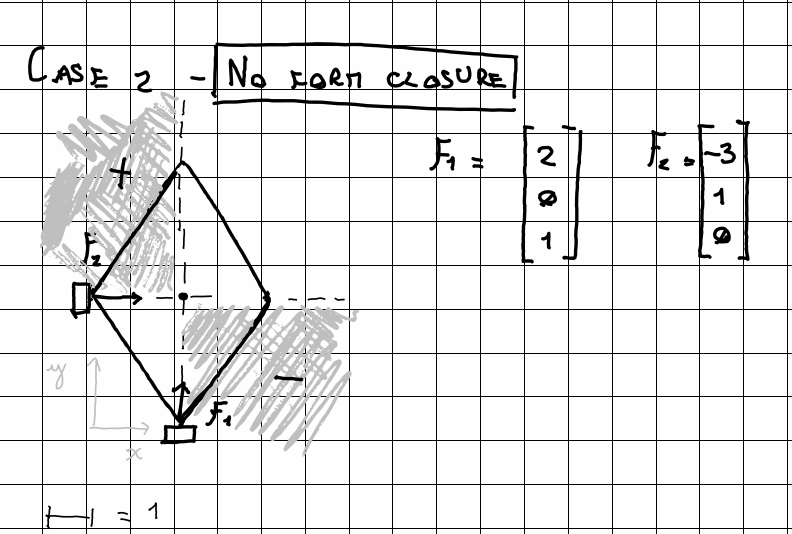 CASE 2 - NO FORM CLOSURE
F1 = [2 0 1] F2 = [-3 1 0]
+
F2
-
y
F1
x
= 1